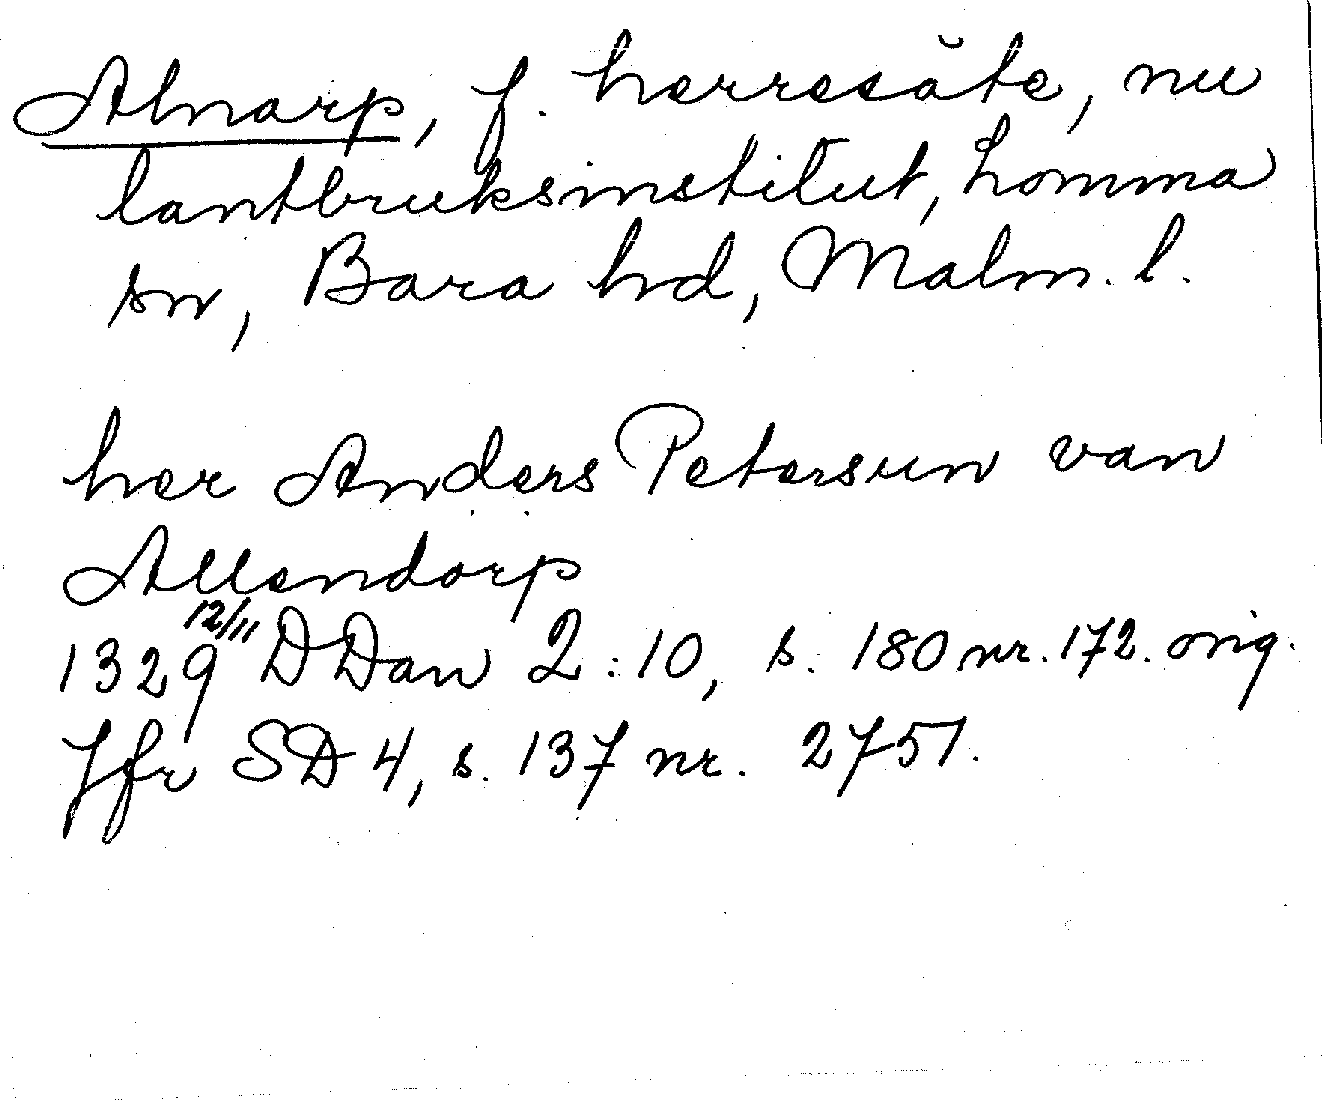 Alnarp, f. herresäte, nu
lantbruksinstitut, Lomma
sn, Bara hd, Malm. l.
her Anders Petersun van
Allendorp
1329 12/11 DDan 2:10, s. 180 nr. 172. orig.
Jfr SD 4, s. 137 nr. 2751.